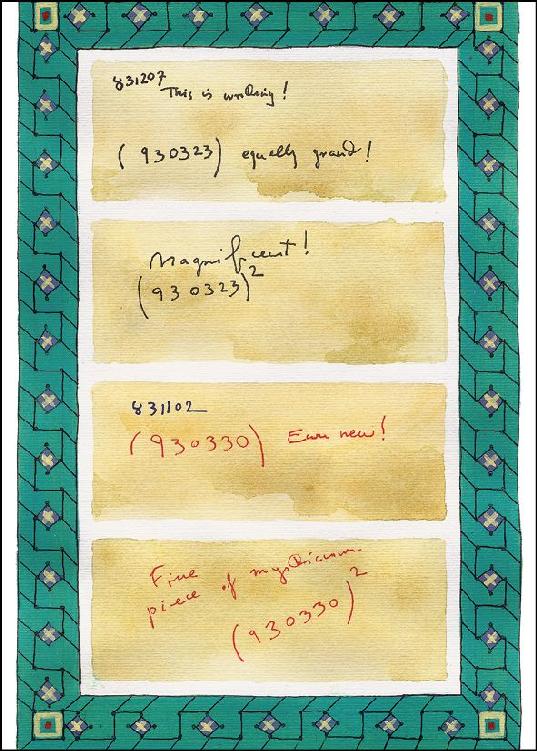 831207
This is working!
(930323) equally grand!
Magnificent!
(930323)²
831102
(930330) new!
Fine
piece of mysticism.
(930330)²